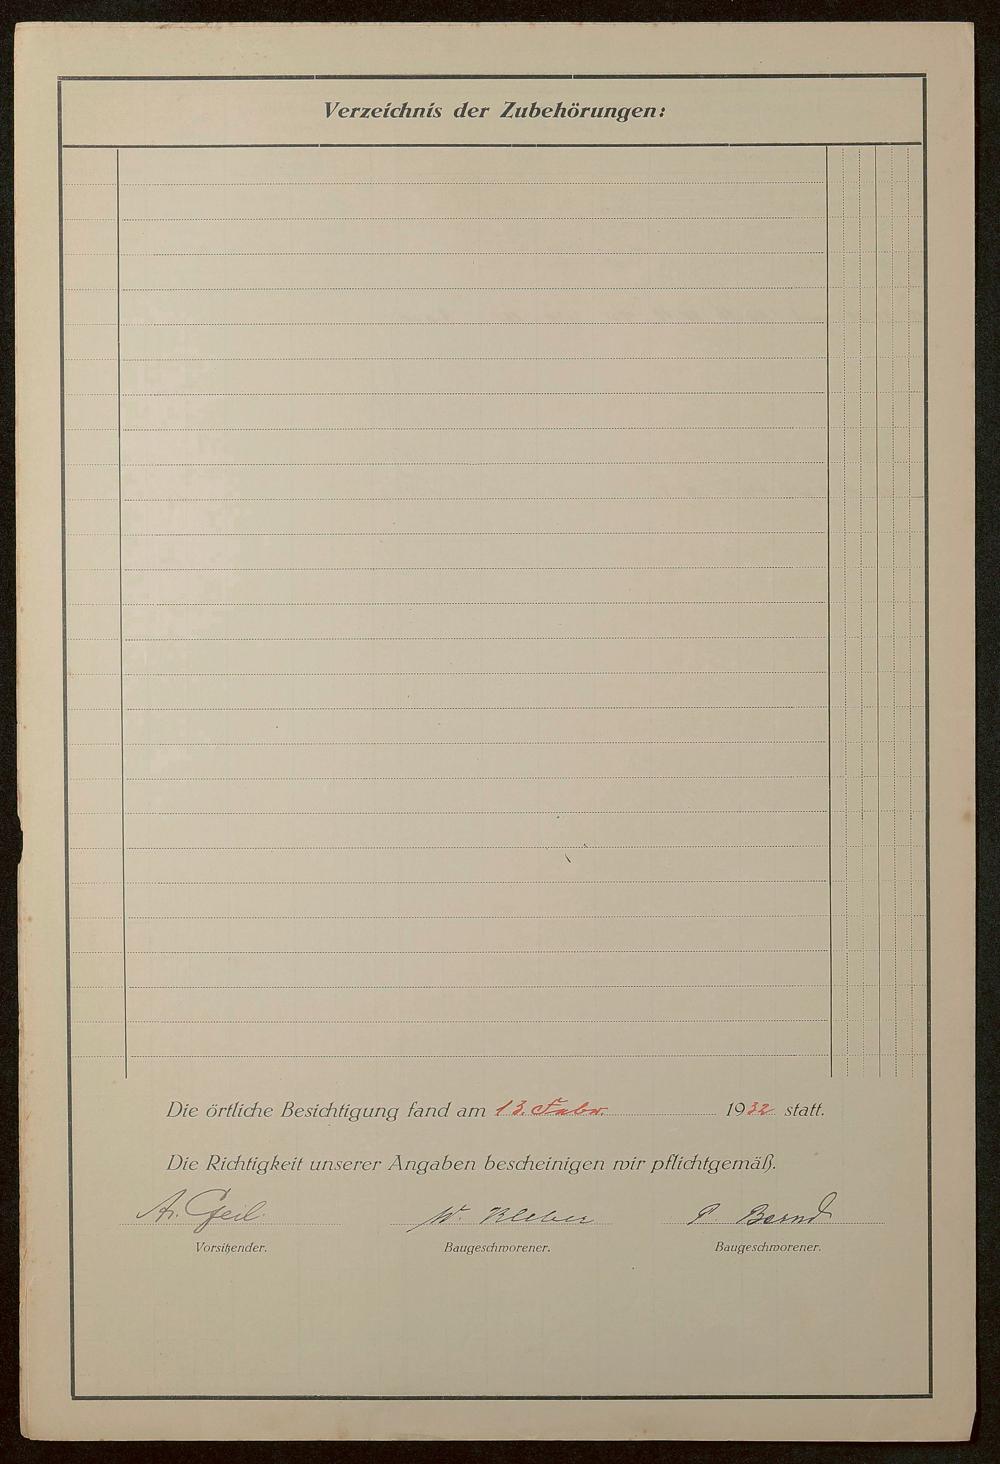 Verzeichnis der Zubehörungen:
Die örtliche Besichtigung fand am 13. Febr. 1932 statt.
Die Richtigkeit unserer Angaben bescheinigen wir pflichtgemäß.
Geil. W. Kleber P. Bernd
Vorsitzender. Baugeschworener. Baugeschworener.